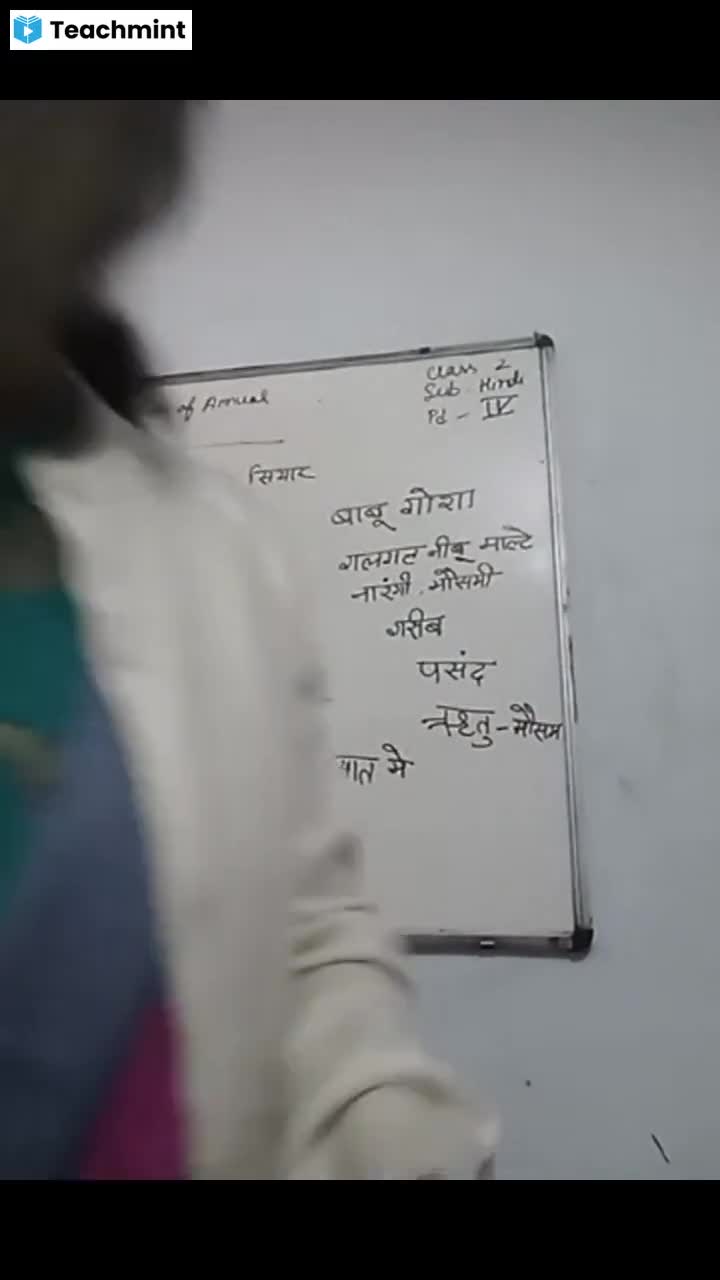 Teachmint
of Annual
Class 2
Sub - Hindi
Pd - IV
सियार
बाबू गोशा
गलगट नीबू माल्टे
नारंगी, मौसमी
गरीब
पसंद
ऋतु - मौसम
में